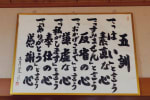 五訓
一つ「はい」という
素直な心
一つ「すみません」という
反省の心
一つ「おかげさま」という
謙虚な心
一つ「私がします」という
奉仕の心
一つ「ありがとう」という
感謝の心